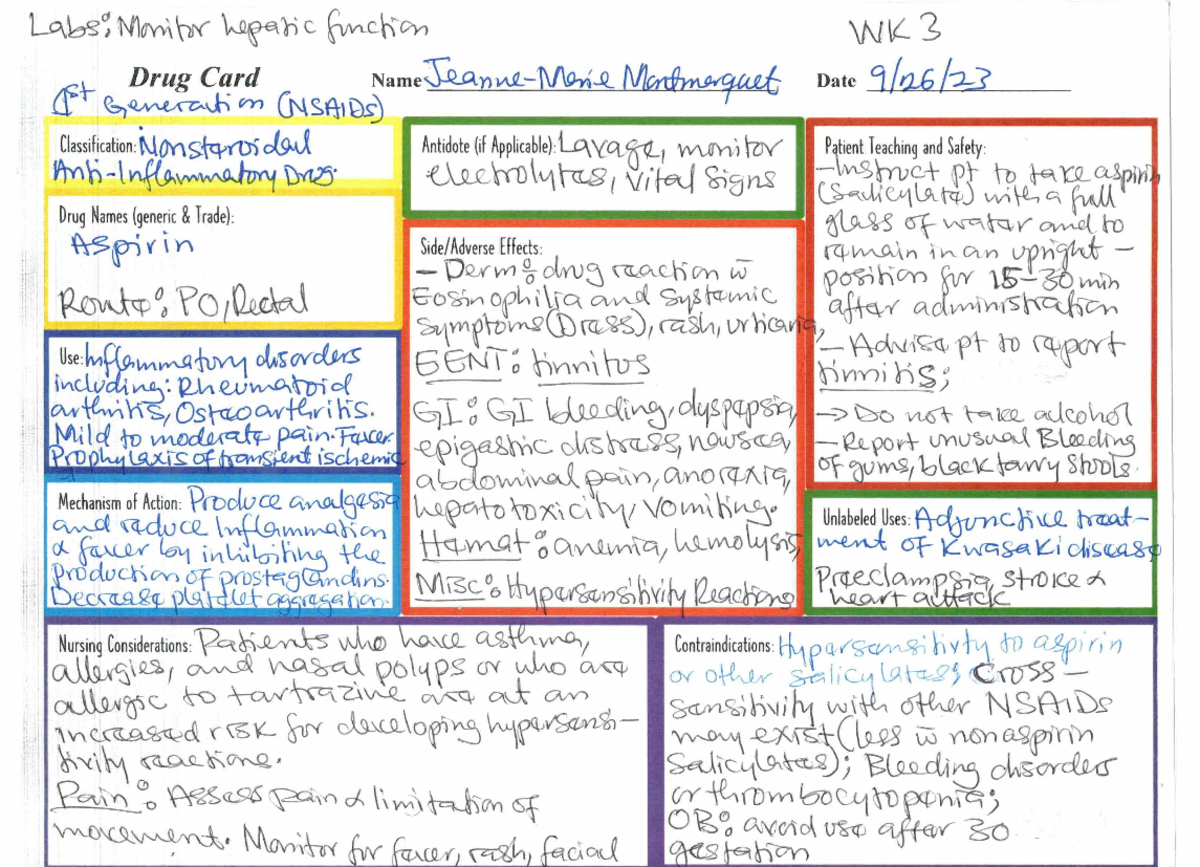 Labs: Monitor hepatic function
WK 3
Drug Card
Name Jeanne-Marie Montmarquet
Date 9/26/23
1st Generation (NSAIDs)
Classification: Nonstaroidal
Anti-Inflammatory Drug.
Drug Names (generic & Trade):
Aspirin
Route: PO/Rectal
Use: Inflammatory disorders
including: Rheumatoid
arthritis, Osteoarthritis.
Mild to moderate pain. Fever.
Prophylaxis of transient ischemic
Mechanism of Action: Produce analgesia
and reduce Inflammation
& fever by inhibiting the
production of prostaglandins.
Decrease platelet aggregation.
Antidote (if Applicable): Lavage, monitor
electrolytes, Vital Signs
Side/Adverse Effects:
- Derm: drug reaction w̄
Eosinophilia and Systemic
Symptoms (Drass), rash, urticaria,
EENT: tinnitus
GI: GI bleeding, dyspepsia,
epigastric distress, nausea,
abdominal pain, anorexia,
hepatotoxicity, Vomiting.
Hemat: anemia, hemolysis,
Misc: Hypersensitivity Reactions
Patient Teaching and Safety:
-Instruct pt to take aspirin
(Salicylate) with a full
glass of water and to
remain in an upright -
position for 15-30 min
after administration
- Advise pt to report
tinnitis;
→ Do not take alcohol
- Report unusual Bleeding
of gums, black tarry Stools.
Unlabeled Uses: Adjunctive treat-
ment of Kwasaki disease
Preeclampsia, stroke &
heart attack
Nursing Considerations: Patients who have asthma,
allergies, and nasal polyps or who are
allergic to tartrazine are at an
increased risk for developing hypersensi-
tivity reactions.
Pain: Assess pain & limitation of
movement. Monitor for fever, rash, facial
Contraindications: Hypersensitivty to aspirin
or other salicylates; Cross-
sensitivity with other NSAIDs
may exist (less w̄ nonaspirin
Salicylates); Bleeding disorders
or thrombocytopenia;
OB: avoid use after 30
gestation